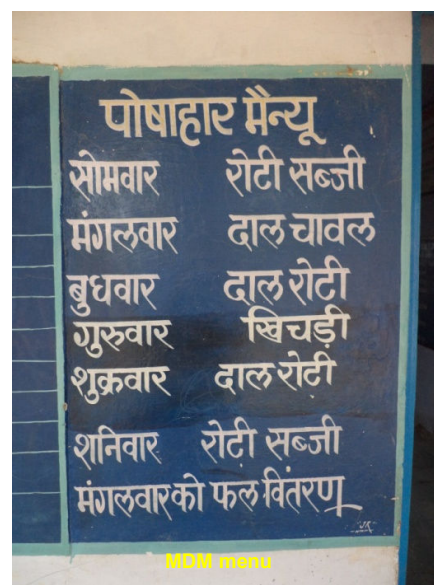 पोषाहार मैन्यू
सोमवार रोटी सब्जी
मंगलवार दाल चावल
बुधवार दाल रोटी
गुरुवार खिचड़ी
शुक्रवार दाल रोटी
शनिवार रोटी सब्जी
मंगलवार को फल वितरण
MDM menu